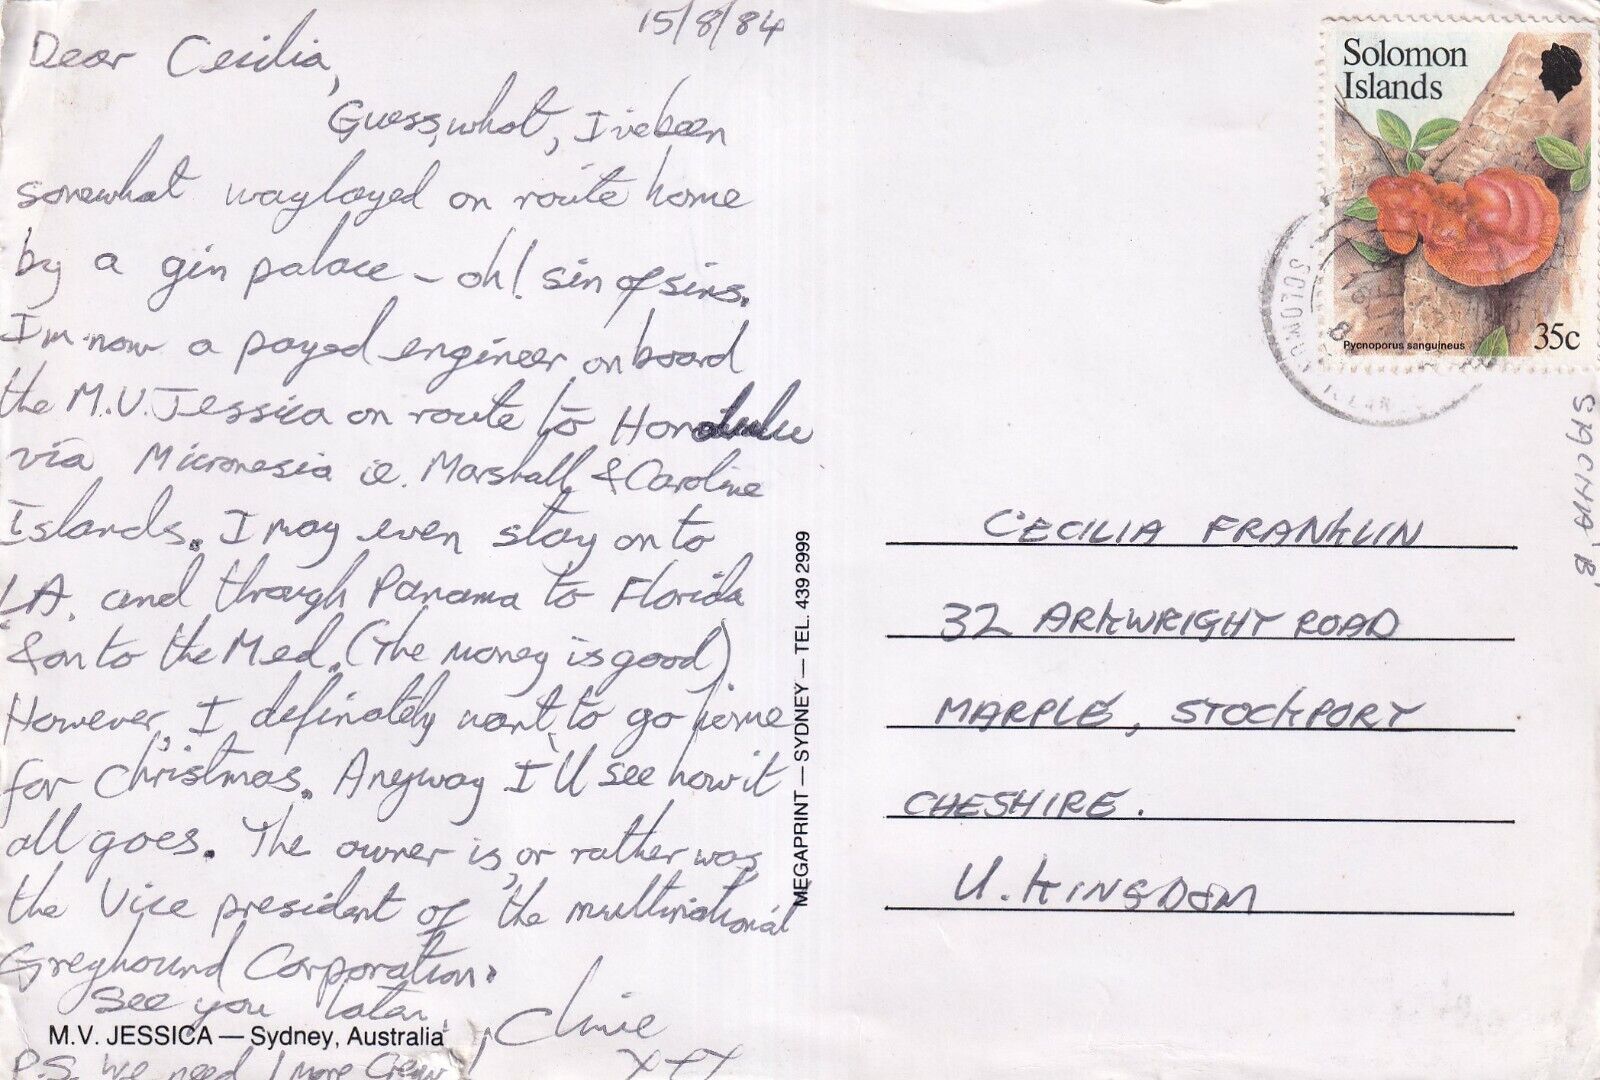 15/8/84
Dear Cecilia,
Guess, what, I've been
somewhat waylayed on route home
by a gin palace - oh! sin of sins.
I'm now a payed engineer on board
the M.V. Jessica on route to Honolulu
via Micronesia ie. Marshall & Caroline
Islands. I may even stay on to
L.A. and through Panama to Florida
& on to the Med. (The money is good)
However, I definately want to go home
for Christmas. Anyway I'll see how it
all goes. The owner is, or rather was,
the Vice president of the multinational
Greyhound Corporation.
See you later,
Clive
xxx
M.V. JESSICA — Sydney, Australia
P.S. We need 1 more Crew!
MEGAPRINT — SYDNEY — TEL. 439 2999
Solomon
Islands
Pycnoporus sanguineus
35c
SOLOMON
CECILIA FRANKLIN
32 ARKWRIGHT ROAD
MARPLE, STOCKPORT
CHESHIRE.
U. KINGDOM